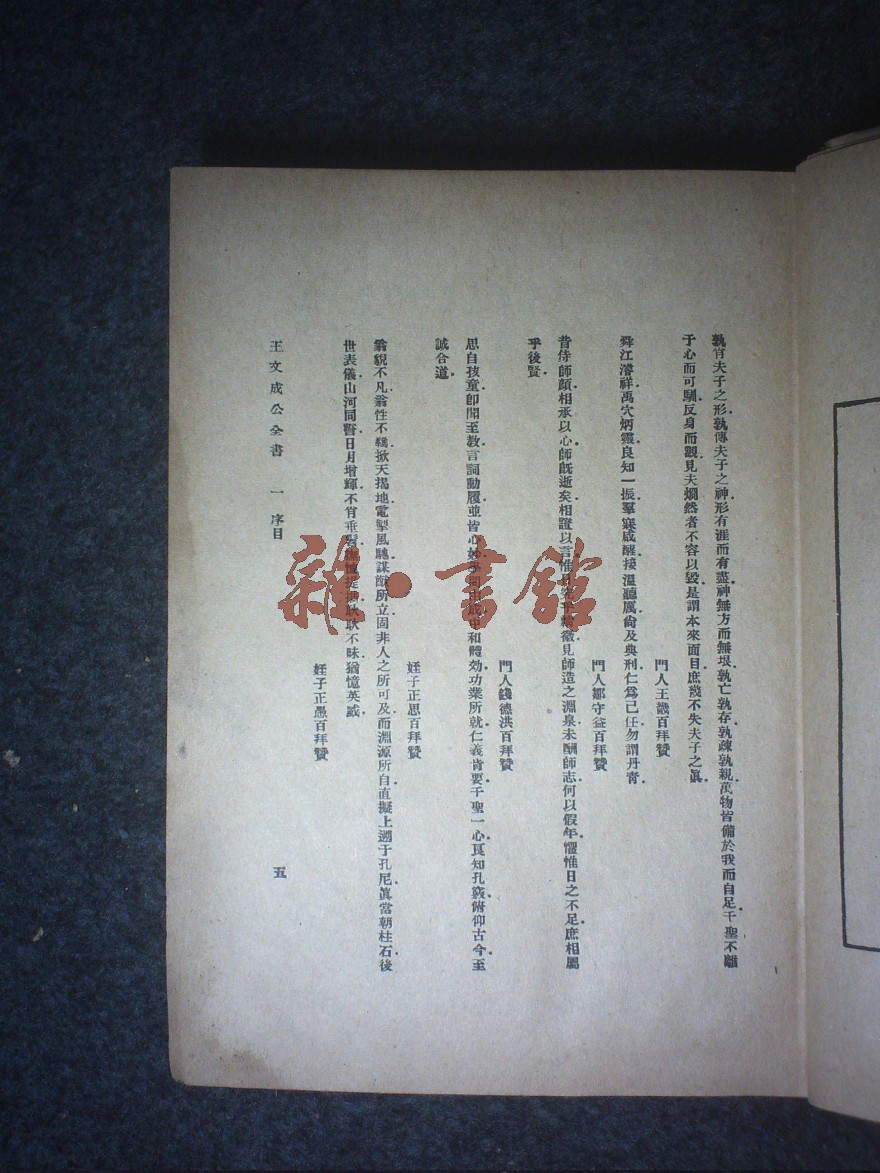 孰肖夫子之形孰傳夫子之神形有涯而有盡神無方而無垠孰亡孰存孰疎孰親萬物皆備於我而自足千聖不離
于心而可馴反身而觀見夫爛然者不容以毀是謂本來面目庶幾不失夫子之眞
門人王畿百拜贊
舜江濬祥禹穴炳靈良知一振羣寐咸醒接溫聽厲尙及典刑仁爲己任勿謂丹靑
門人鄒守益百拜贊
昔侍師顏相承以心師旣逝矣相證以言惟日 微見師造之淵泉未酬師志何以假年懼惟日之不足庶相屬
乎後賢
門人錢德洪百拜贊
思自孩童卽聞至敎言詞動履並皆心妙 中和體効功業所就仁義肯要千聖一心良知孔竅俯仰古今至
誠合道
姪子正思百拜贊
翁貌不凡翁性不羈掀天揭地電掣風馳謀猷所立固非人之所可及而淵源所自直擬上遡于孔尼眞當朝柱石後
世表儀山河同誓日月增輝不肖垂 提 耿耿不昧猶憶英威
姪子正愚百拜贊
王文成公全書 一 序目
五
雜·書館